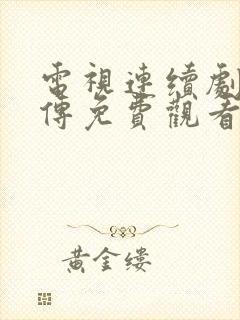 電視連續劇
傳免費觀看
黃金縷